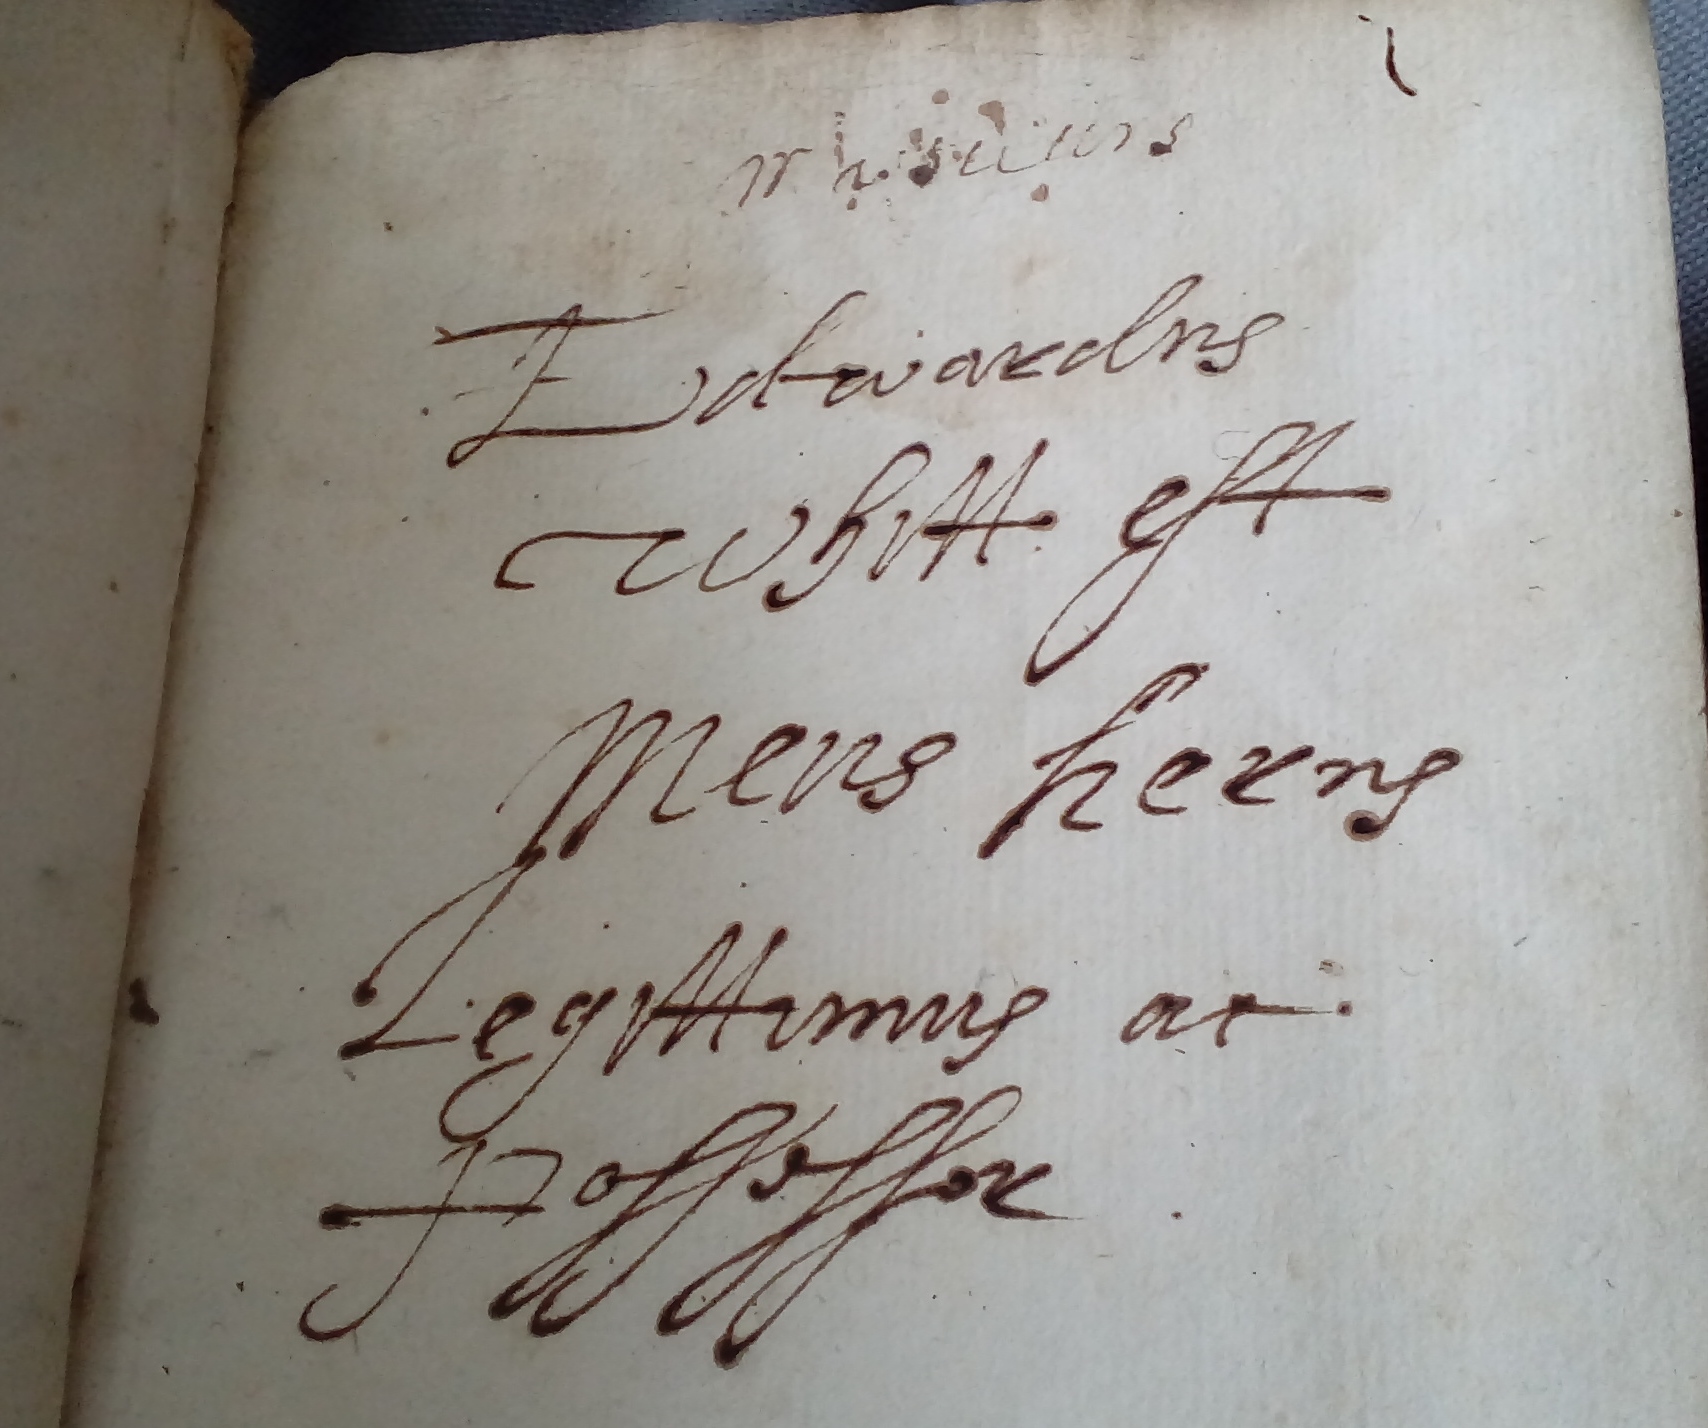 Edwardus
Whitt est
Meus herus
Legittimus ac
Possessor